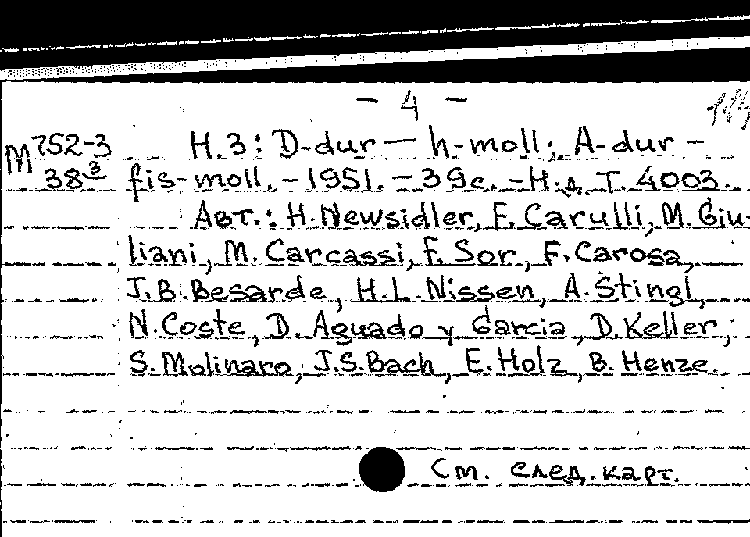 – 4 –
М 752-3 H.3: D-dur — h-moll; A-dur –
38³ fis-moll. – 1951. – 39с. – Н.д. Т. 4003.
Авт.: H. Newsidler, F. Carulli, M. Giu-
liani, M. Carcassi, F. Sor, F. Carosa,
J.B. Besarde, H.L. Nissen, A. Stingl,
N. Coste, D. Aguado y Garcia, D. Keller,
S. Molinaro, J.S. Bach, E. Holz, B. Henze.
См. след. карт.